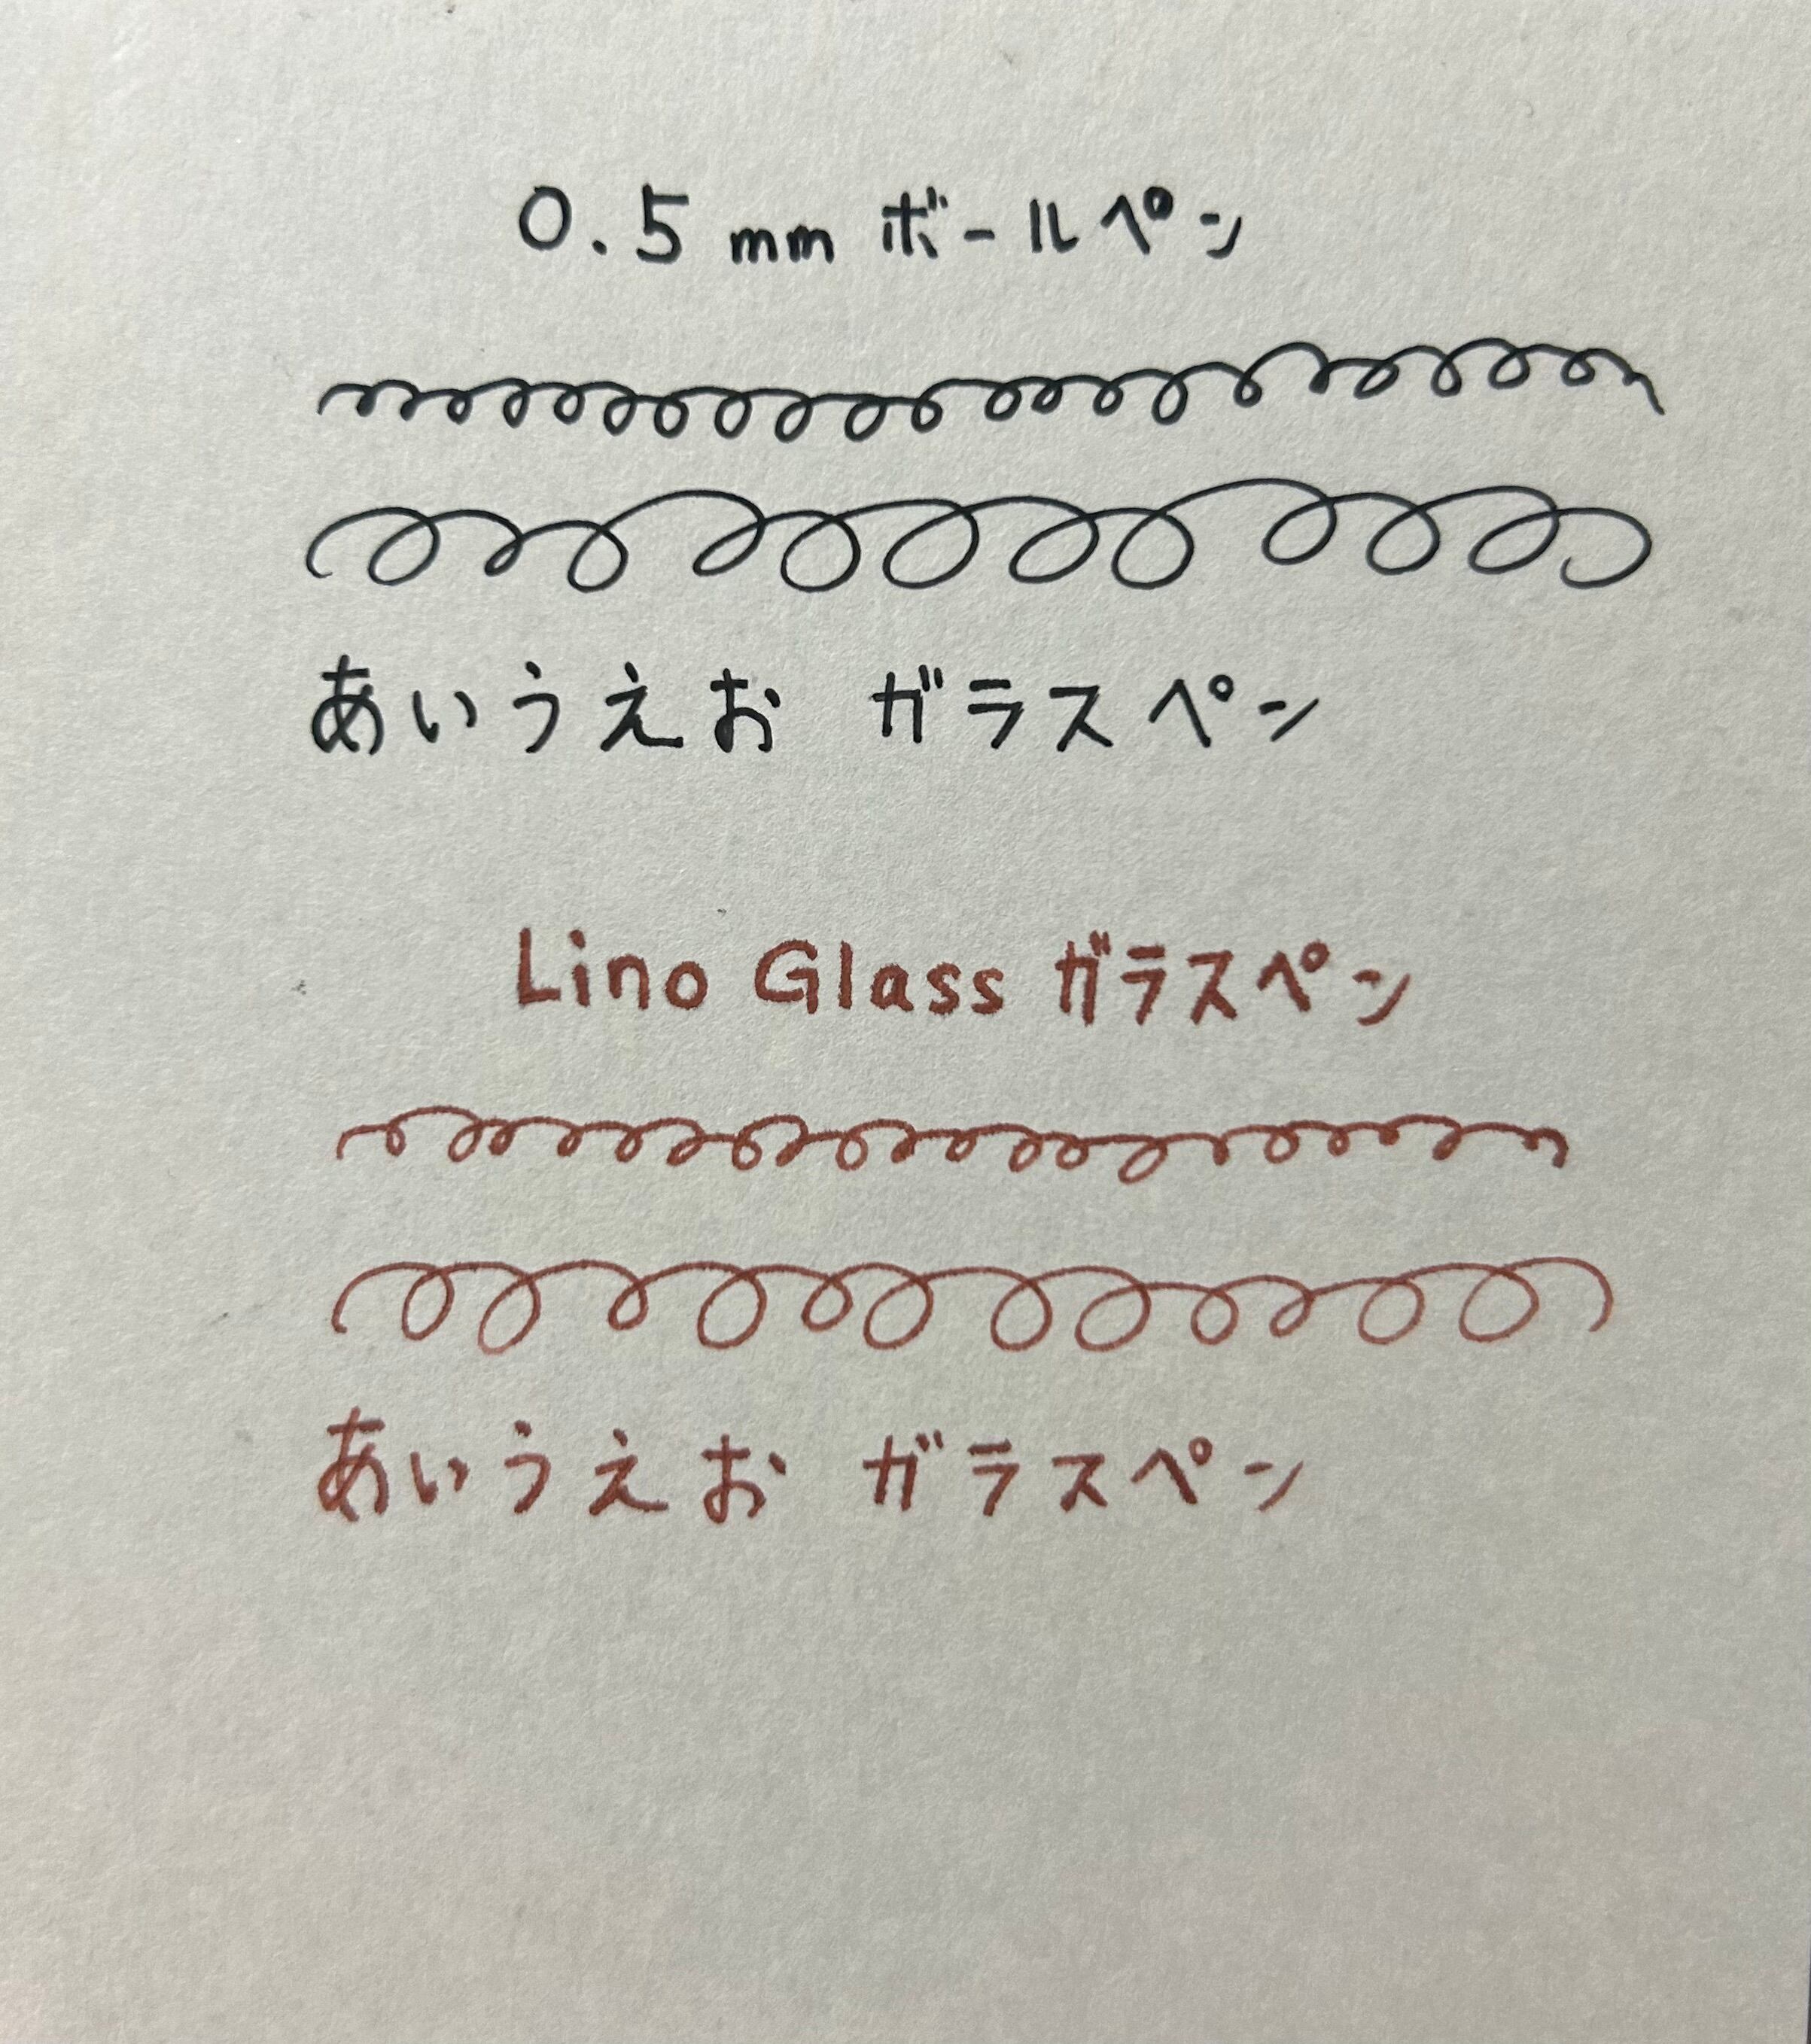 0.5 mm ボールペン
あいうえお ガラスペン
Lino Glass ガラスペン
あいうえお ガラスペン